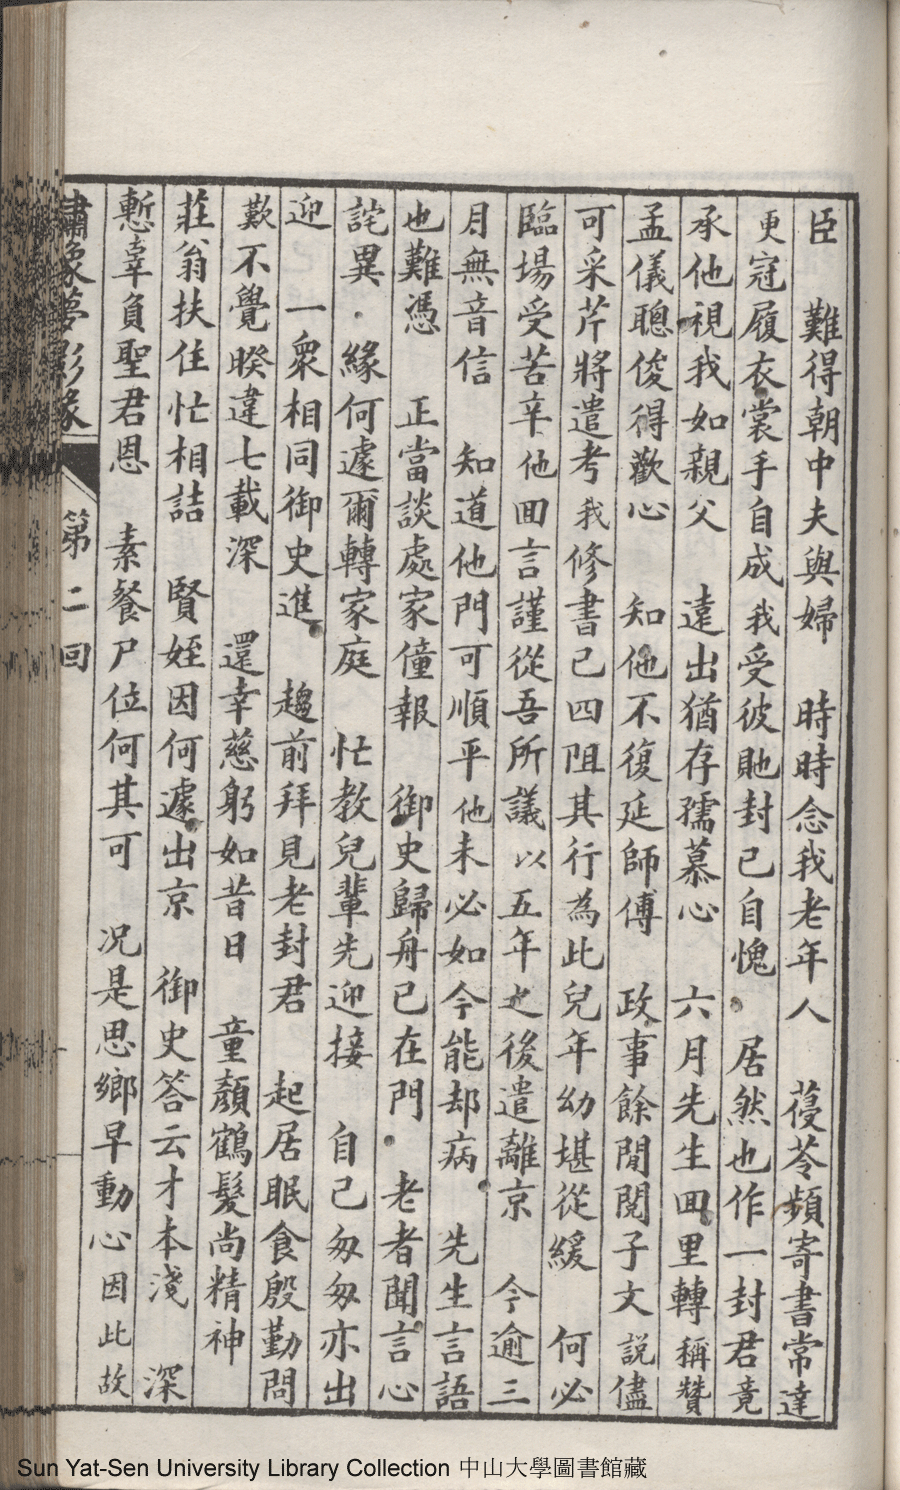 臣　難得朝中夫與婦　時時念我老年人　葠苓頻寄書常達
更冠履衣裳手自成我受彼貤封已自愧　居然也作一封君竟
承他視我如親父　遠出猶存孺慕心　六月先生回里轉稱贊
孟儀聰俊得歡心　知他不復延師傅　政事餘閒閱子文說儘
可采芹將遣考我修書已四阻其行為此兒年幼堪從緩　何必
臨場受苦辛他回言謹從吾所議以五年之後遣離京　今逾三
月無音信　知道他門可順平他未必如今能却病　先生言語
也難憑　正當談處家僮報　御史歸舟已在門　老者聞言心
詫異　緣何遽爾轉家庭　忙教兒輩先迎接　自己匆匆亦出
迎　一衆相同御史進　趨前拜見老封君　起居眠食殷勤問
歎不覺暌違七載深　還幸慈躬如昔日　童顏鶴髮尚精神
莊翁扶住忙相詰　賢姪因何遽出京　御史答云才本淺　深
慙辜負聖君恩　素餐尸位何其可　况是思鄉早動心因此故
繡像夢影緣　第二回
Sun Yat-Sen University Library Collection 中山大學圖書館藏